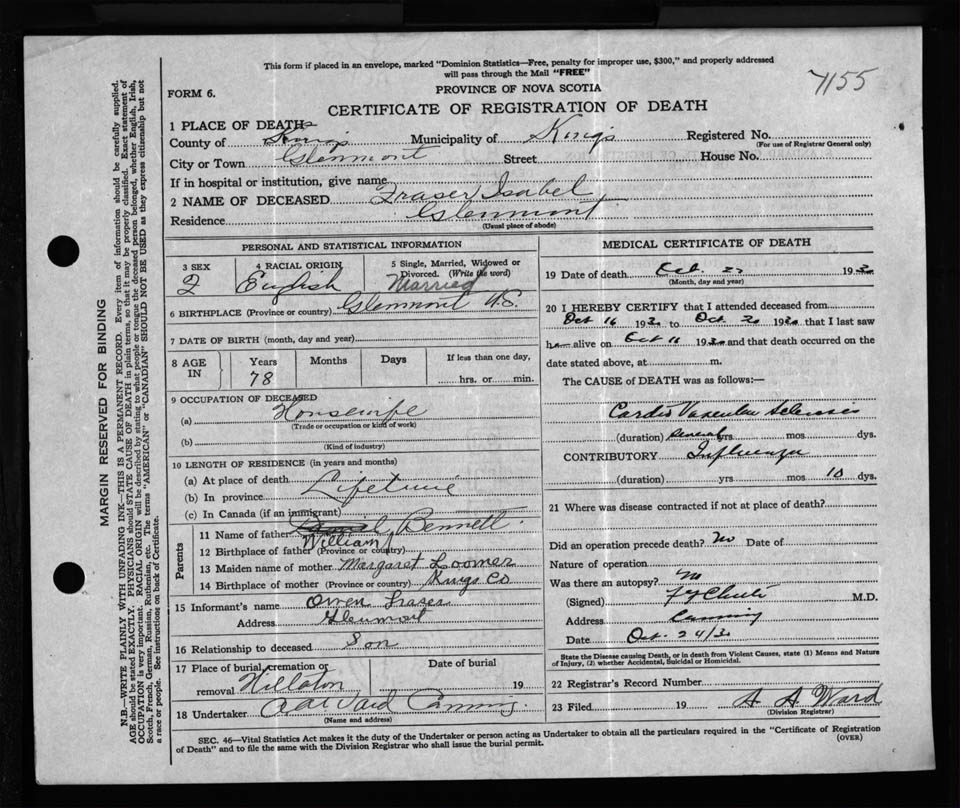 This form if placed in an envelope, marked "Dominion Statistics—Free, penalty for improper use, $300," and properly addressed
will pass through the Mail "FREE"
7155
FORM 6.
PROVINCE OF NOVA SCOTIA
CERTIFICATE OF REGISTRATION OF DEATH
1 PLACE OF DEATH
County of Kings Municipality of Kings Registered No.
(For use of Registrar General only)
City or Town Glenmont Street House No.
If in hospital or institution, give name
2 NAME OF DECEASED Fraser Isabel
Residence Glenmont
(Usual place of abode)
PERSONAL AND STATISTICAL INFORMATION
3 SEX 4 RACIAL ORIGIN 5 Single, Married, Widowed or
Divorced. (Write the word)
English Married
6 BIRTHPLACE (Province or country) Glenmont N.S.
7 DATE OF BIRTH (month, day and year)
8 AGE IN Years Months Days If less than one day,
78 hrs. or min.
9 OCCUPATION OF DECEASED
(a) Housewife
(Trade or occupation or kind of work)
(b)
(Kind of industry)
10 LENGTH OF RESIDENCE (in years and months)
(a) At place of death
(b) In province Lifetime
(c) In Canada (if an immigrant)
Parents
11 Name of father Bennett
William
12 Birthplace of father (Province or country)
13 Maiden name of mother Margaret Loomer
14 Birthplace of mother (Province or country) Kings Co
15 Informant's name Owen Fraser
Address Glenmont
16 Relationship to deceased Son
17 Place of burial, cremation or Date of burial
removal 19
18 Undertaker Canning
(Name and address)
MEDICAL CERTIFICATE OF DEATH
19 Date of death Oct. 193
(Month, day and year)
20 I HEREBY CERTIFY that I attended deceased from
Oct 16 193 to Oct 20 193 that I last saw
h alive on Oct 193 and that death occurred on the
date stated above, at m.
The CAUSE of DEATH was as follows:—
Cardio Vascular Sclerosis
(duration) Several yrs mos. dys.
CONTRIBUTORY Influenza
(duration) yrs mos. 10 dys.
21 Where was disease contracted if not at place of death?
Did an operation precede death? No Date of
Nature of operation
Was there an autopsy? No
(Signed) M.D.
Address Canning
Date Oct. 24/3
State the Disease causing Death, or in death from Violent Causes, state (1) Means and Nature
of Injury, (2) whether Accidental, Suicidal or Homicidal.
22 Registrar's Record Number
23 Filed 19 A A Ward
(Division Registrar)
SEC. 46—Vital Statistics Act makes it the duty of the Undertaker or person acting as Undertaker to obtain all the particulars required in the "Certificate of Registration
of Death" and to file the same with the Division Registrar who shall issue the burial permit.
(OVER)
MARGIN RESERVED FOR BINDING
N.B.—WRITE PLAINLY WITH UNFADING INK—THIS IS A PERMANENT RECORD. Every item of information should be carefully supplied.
AGE should be stated EXACTLY. PHYSICIANS should STATE CAUSE OF DEATH in plain terms, so that it may be properly classified. Exact statement of
OCCUPATION is very important. RACIAL ORIGIN will be described by stating to what people or tongue the deceased person belonged, whether English, Irish,
Scotch, French, German, Russian, Ruthenian, etc. The terms "AMERICAN" or "CANADIAN" SHOULD NOT BE USED as they express citizenship but not
a race or people. See instructions on back of Certificate.